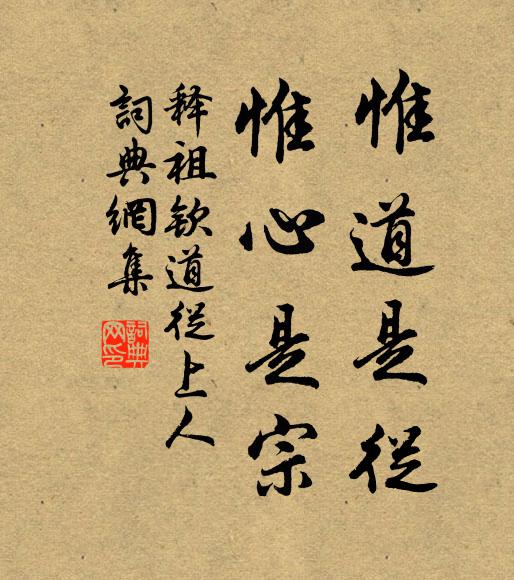 惟道是從
惟心是宗
释祖钦道從上人
詞典網集
詞典
网印